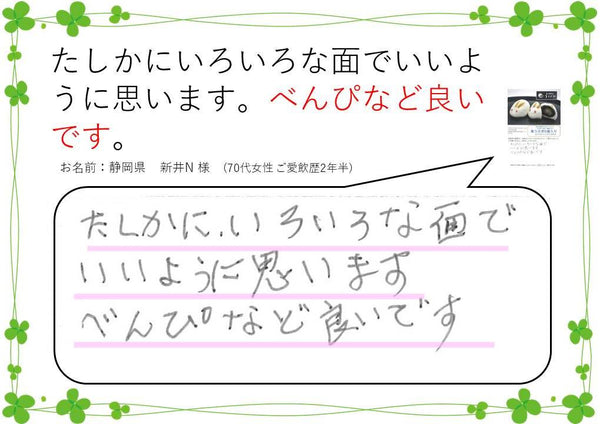 たしかにいろいろな面でいいよ
うに思います。べんぴなど良い
です。
お名前：静岡県　新井N 様　(70代女性 ご愛飲歴2年半)
たしかに、いろいろな面で
いいように思います
べんぴなど良いです